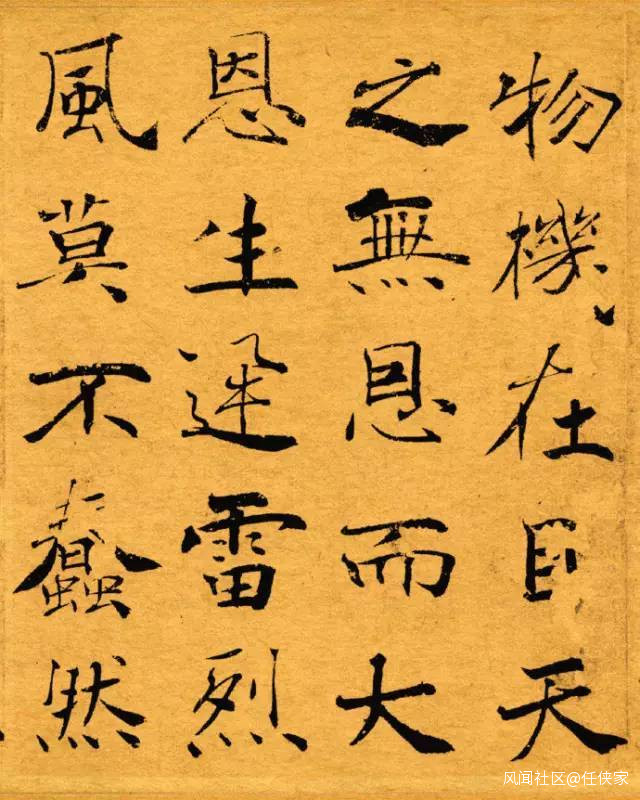 物機在目天
之無恩而大
恩生迅雷烈
風莫不蠢然
风闻社区@任侠家